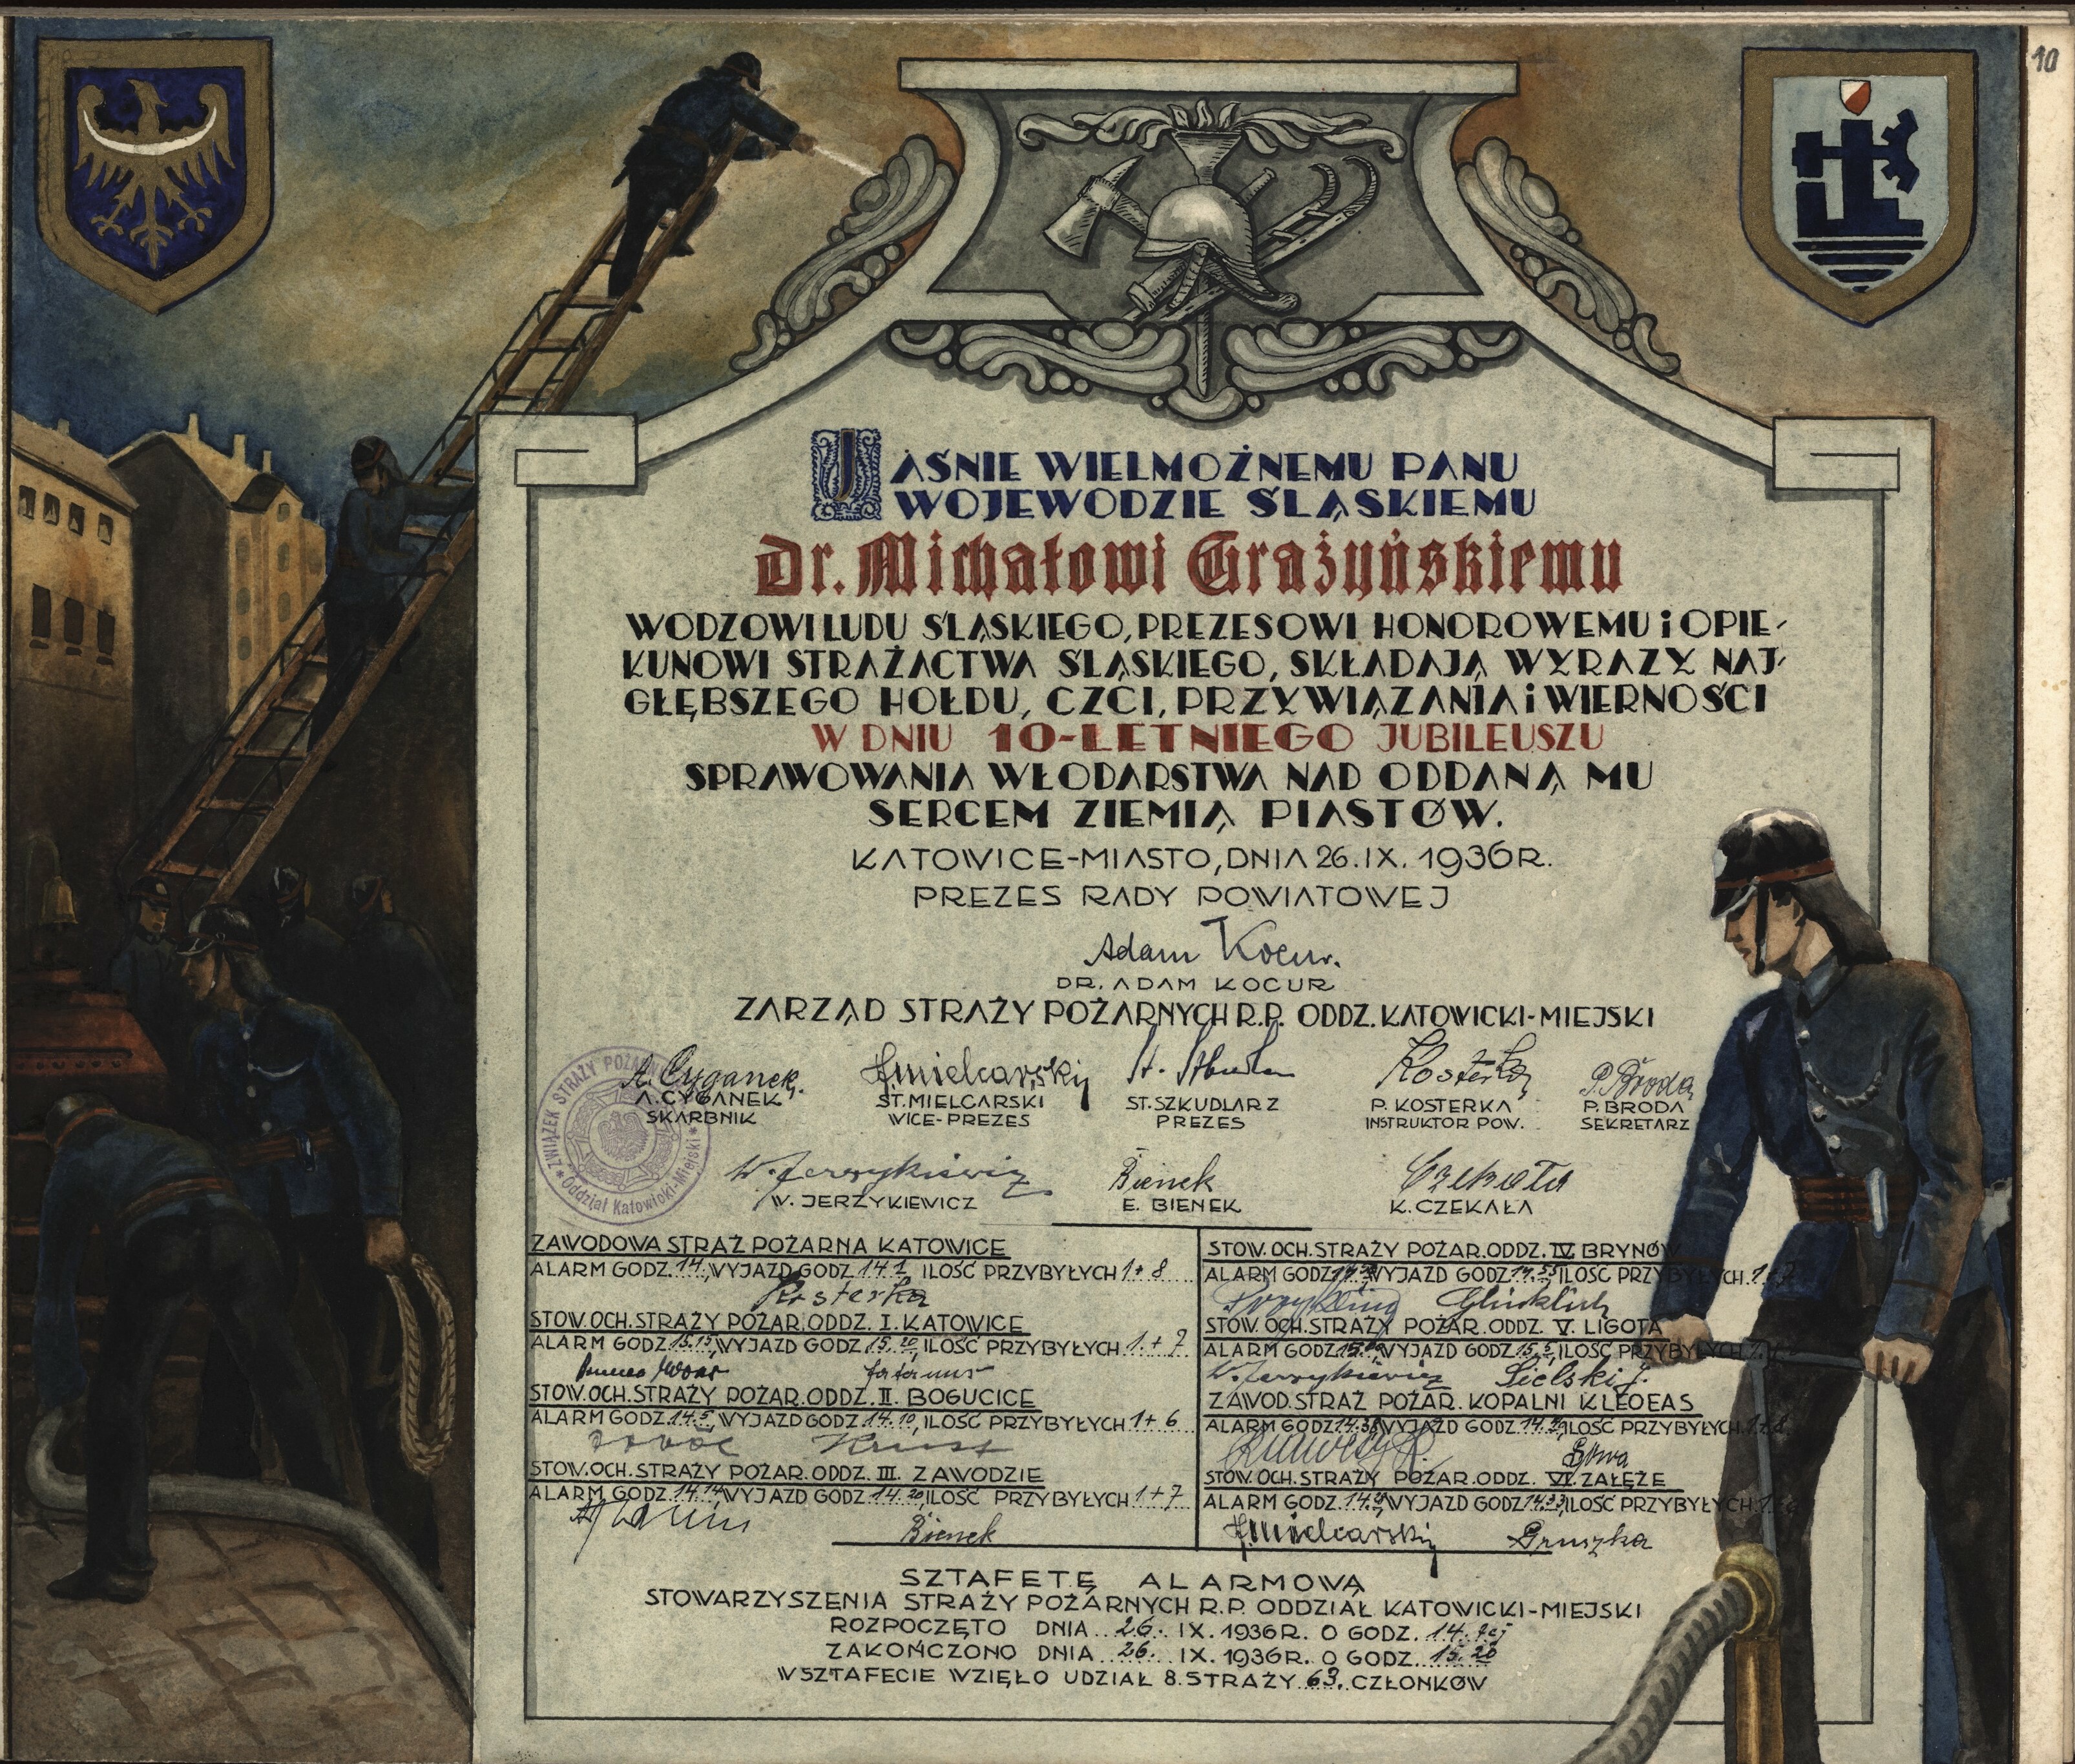 10
JAŚNIE WIELMOŻNEMU PANU
WOJEWODZIE ŚLĄSKIEMU
Dr. Michałowi Grażyńskiemu
WODZOWI LUDU ŚLĄSKIEGO, PREZESOWI HONOROWEMU i OPIE-
KUNOWI STRAŻACTWA ŚLĄSKIEGO, SKŁADAJĄ WYRAZY NAJ-
GŁĘBSZEGO HOŁDU, CZCI, PRZYWIĄZANIA i WIERNOŚCI
W DNIU 10-LETNIEGO JUBILEUSZU
SPRAWOWANIA WŁODARSTWA NAD ODDANĄ MU
SERCEM ZIEMIĄ PIASTÓW.
KATOWICE-MIASTO, DNIA 26.IX. 1936R.
PREZES RADY POWIATOWEJ
Adam Kocur.
DR. ADAM KOCUR
ZARZĄD STRAŻY POŻARNYCH R.P. ODDZ. KATOWICKI-MIEJSKI
A. Cyganek. St. Mielcarski Kosterka P. Broda
A. CYGANEK ST. MIELCARSKI ST. SZKUDLARZ P. KOSTERKA P. BRODA
SKARBNIK WICE-PREZES PREZES INSTRUKTOR POW. SEKRETARZ
ZWIĄZEK STRAŻY POŻARNYCH
Oddział Katowicki-Miejski
W. Jerzykiewicz Bienek Czekała
W. JERZYKIEWICZ E. BIENEK K. CZEKAŁA
ZAWODOWA STRAŻ POŻARNA KATOWICE
ALARM GODZ. 14, WYJAZD GODZ. 14.1, ILOŚĆ PRZYBYŁYCH 1+8
Kosterka
STOW. OCH. STRAŻY POŻAR. ODDZ. I. KATOWICE
ALARM GODZ. 15.15, WYJAZD GODZ. 15.20, ILOŚĆ PRZYBYŁYCH 1+7
STOW. OCH. STRAŻY POŻAR. ODDZ. II. BOGUCICE
ALARM GODZ. 14.5, WYJAZD GODZ. 14.10, ILOŚĆ PRZYBYŁYCH 1+6
STOW. OCH. STRAŻY POŻAR. ODDZ. III. ZAWODZIE
ALARM GODZ. 14.14, WYJAZD GODZ. 14.20, ILOŚĆ PRZYBYŁYCH 1+7
Bienek
STOW. OCH. STRAŻY POŻAR. ODDZ. IV. BRYNÓW
ALARM GODZ. WYJAZD GODZ. 14.55, ILOŚĆ PRZYBYŁYCH
STOW. OCH. STRAŻY POŻAR. ODDZ. V. LIGOTA
ALARM GODZ. WYJAZD GODZ. 15.5, ILOŚĆ PRZYBYŁYCH
W. Jerzykiewicz Sielski J.
ZAWOD. STRAŻ POŻAR. KOPALNI KLEOFAS
ALARM GODZ. 14.38, WYJAZD GODZ. ILOŚĆ PRZYBYŁYCH
STOW. OCH. STRAŻY POŻAR. ODDZ. VI. ZAŁĘŻE
ALARM GODZ. WYJAZD GODZ. ILOŚĆ PRZYBYŁYCH
St. Mielcarski Gruszka
SZTAFETĘ ALARMOWĄ
STOWARZYSZENIA STRAŻY POŻARNYCH R.P. ODDZIAŁ KATOWICKI-MIEJSKI
ROZPOCZĘTO DNIA 26. IX. 1936R. O GODZ. 14.tej
ZAKOŃCZONO DNIA 26. IX. 1936R. O GODZ. 15.20
W SZTAFECIE WZIĘŁO UDZIAŁ 8. STRAŻY 63. CZŁONKÓW